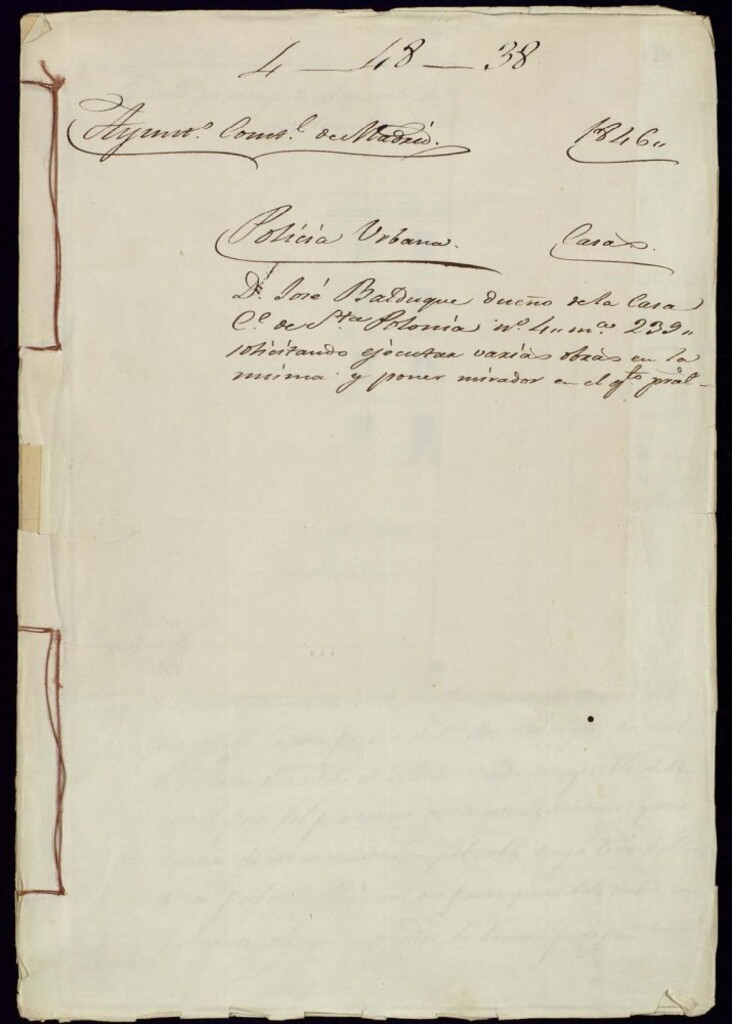 4 — 48 — 38
Ayunt.º Const.l de Madrid.
1846,,
Policia Urbana.
Casas.
D.n José Balduque dueño de la Casa
C.e de S.ta Polonia nº. 4,, m.a 239,,
solicitando ejecutar varias obras en la
misma y poner mirador en el q.to pral